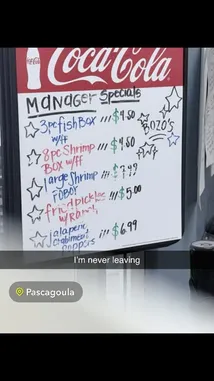 Coca-Cola
MANAGER Specials
3pc fish Box /// $9.50
w/ff
BOZO'S
8pc Shrimp /// $9.50
BOX w/ff
Large Shrimp
POBOY
fried pickles /// $5.00
w/Ranch
jalapeno /// $6.99
crabmeat
poppers
I'm never leaving
Pascagoula